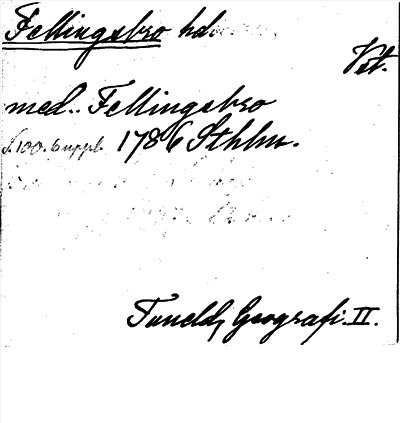 Fellingsbro hd.
Vst.
med. Fellingsbro
f. 100. Suppl. 1786 Sthlm.
Tuneld, Geografi. II.